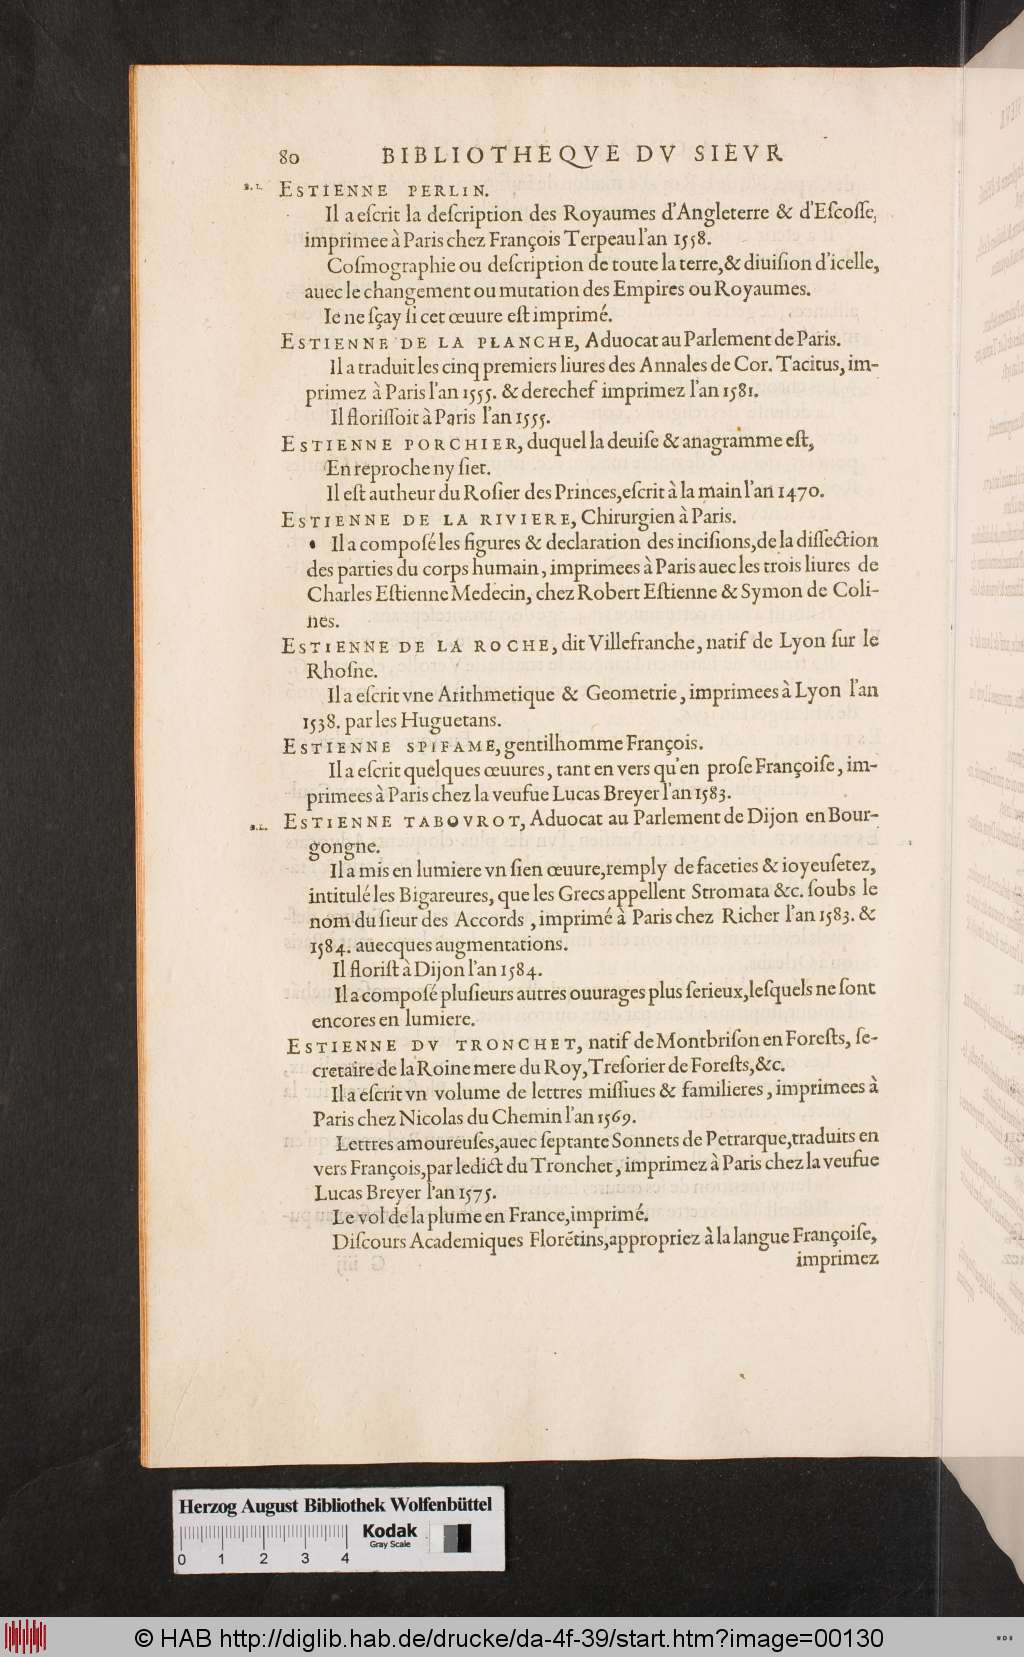 80 BIBLIOTHEQVE DV SIEVR
ESTIENNE PERLIN.
Il a eſcrit la deſcription des Royaumes d'Angleterre & d'Eſcoſſe,
imprimee à Paris chez François Terpeau l'an 1558.
Coſmographie ou deſcription de toute la terre, & diuiſion d'icelle,
auec le changement ou mutation des Empires ou Royaumes.
Ie ne ſçay ſi cet œuure eſt imprimé.
ESTIENNE DE LA PLANCHE, Aduocat au Parlement de Paris.
Il a traduit les cinq premiers liures des Annales de Cor. Tacitus, im-
primez à Paris l'an 1555. & derechef imprimez l'an 1581.
Il floriſſoit à Paris l'an 1555.
ESTIENNE PORCHIER, duquel la deuiſe & anagramme eſt,
En reproche ny ſiet.
Il eſt autheur du Roſier des Princes, eſcrit à la main l'an 1470.
ESTIENNE DE LA RIVIERE, Chirurgien à Paris.
Il a compoſé les figures & declaration des inciſions, de la diſſection
des parties du corps humain, imprimees à Paris auec les trois liures de
Charles Eſtienne Medecin, chez Robert Eſtienne & Symon de Coli-
nes.
ESTIENNE DE LA ROCHE, dit Villefranche, natif de Lyon ſur le
Rhoſne.
Il a eſcrit vne Arithmetique & Geometrie, imprimees à Lyon l'an
1538. par les Huguetans.
ESTIENNE SPIFAME, gentilhomme François.
Il a eſcrit quelques œuures, tant en vers qu'en proſe Françoiſe, im-
primees à Paris chez la veufue Lucas Breyer l'an 1583.
ESTIENNE TABOVROT, Aduocat au Parlement de Dijon en Bour-
gongne.
Il a mis en lumiere vn ſien œuure, remply de faceties & ioyeuſetez,
intitulé les Bigareures, que les Grecs appellent Stromata &c. ſoubs le
nom du ſieur des Accords, imprimé à Paris chez Richer l'an 1583. &
1584. auecques augmentations.
Il floriſt à Dijon l'an 1584.
Il a compoſé pluſieurs autres ouurages plus ſerieux, leſquels ne ſont
encores en lumiere.
ESTIENNE DV TRONCHET, natif de Montbriſon en Foreſts, ſe-
cretaire de la Roine mere du Roy, Treſorier de Foreſts, &c.
Il a eſcrit vn volume de lettres miſſiues & familieres, imprimees à
Paris chez Nicolas du Chemin l'an 1569.
Lettres amoureuſes, auec ſeptante Sonnets de Petrarque, traduits en
vers François, par ledict du Tronchet, imprimez à Paris chez la veufue
Lucas Breyer l'an 1575.
Le vol de la plume en France, imprimé.
Diſcours Academiques Florẽtins, appropriez à la langue Françoiſe,
imprimez
Herzog August Bibliothek Wolfenbüttel
0 1 2 3 4
Kodak
Gray Scale
© HAB http://diglib.hab.de/drucke/da-4f-39/start.htm?image=00130